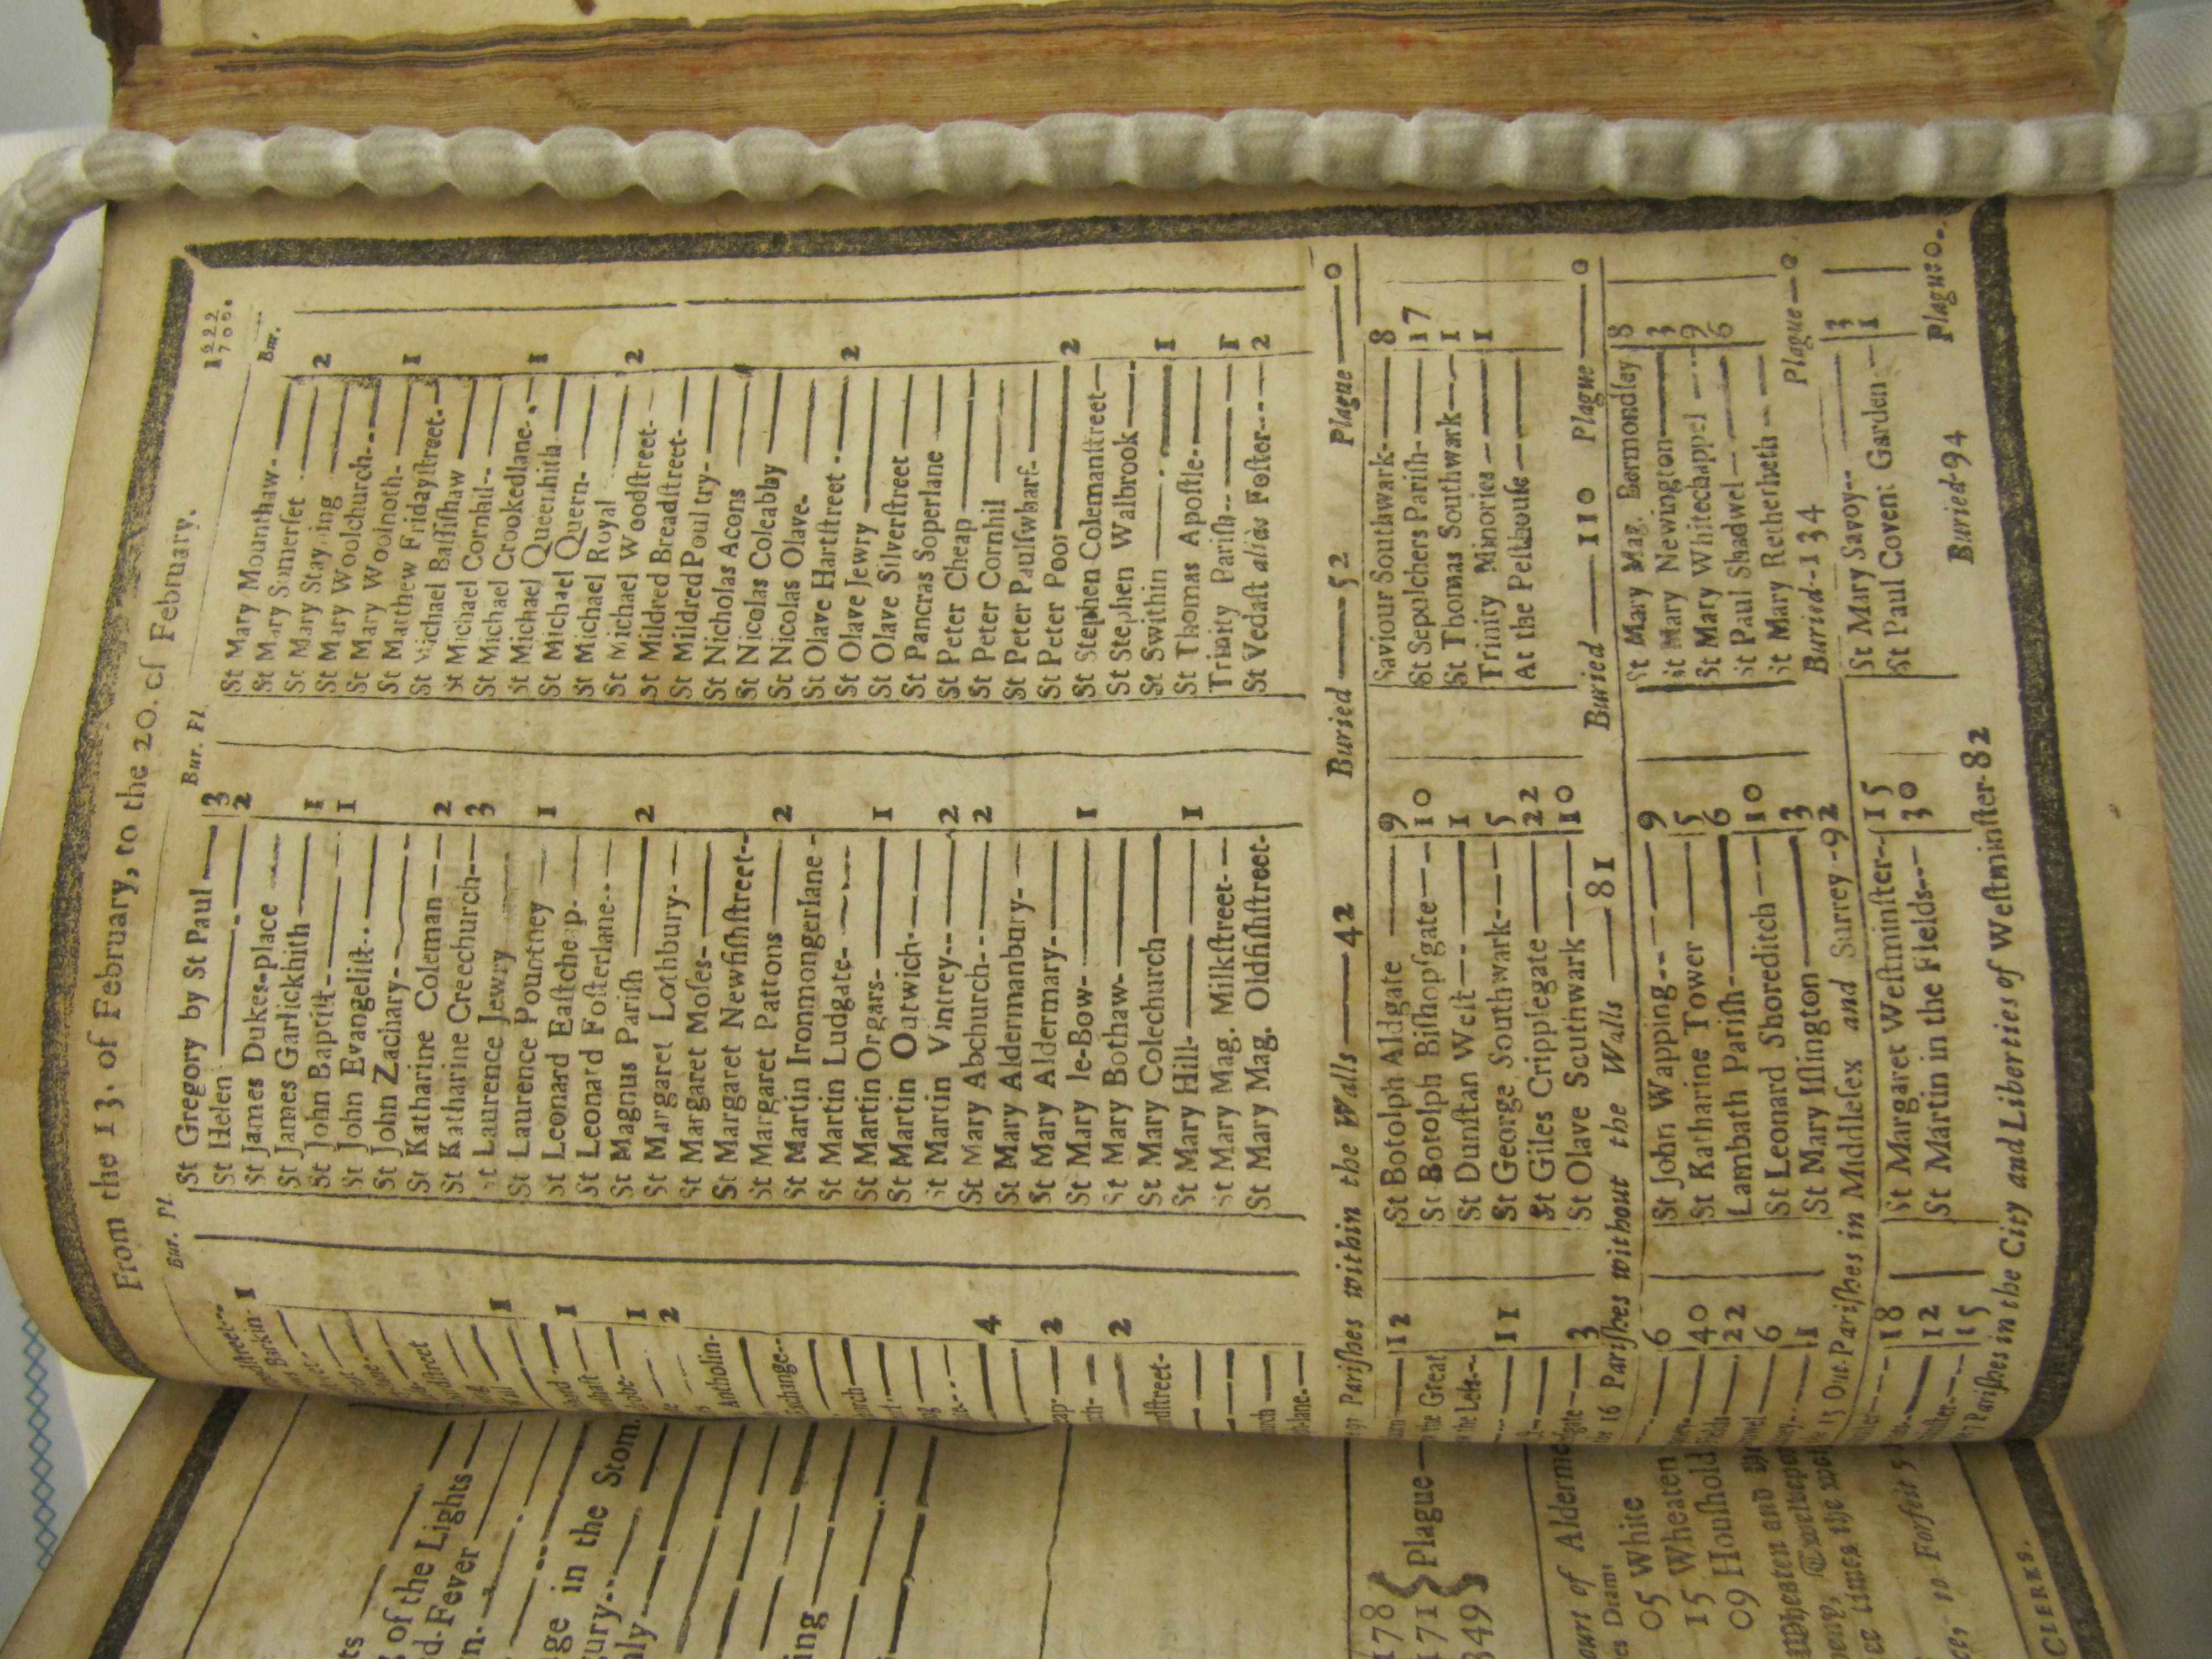 From the 13. of February, to the 20. of February.
1699
1700.
Bur. Pl.
Bur. Pl.
Bur.
Barkin 1
1
1
1
2
Antholin-
Exchange--
4
2
2
St Gregory by St Paul 3
St Helen 2
St James Dukes-place
St James Garlickhith
St John Baptist 1
St John Evangelist 1
St John Zachary
St Katharine Coleman 2
St Katharine Creechurch 3
St Laurence Jewry
St Laurence Pountney 1
St Leonard Eastcheap
St Leonard Fosterlane
St Magnus Parish 2
St Margaret Lothbury
St Margaret Moses
St Margaret Newfishstreet
St Margaret Pattons 2
St Martin Ironmongerlane
St Martin Ludgate
St Martin Orgars 1
St Martin Outwich
St Martin Vintrey 2
St Mary Abchurch 2
St Mary Aldermanbury
St Mary Aldermary
St Mary le-Bow 1
St Mary Bothaw
St Mary Colechurch
St Mary Hill 1
St Mary Mag. Milkstreet
St Mary Mag. Oldfishstreet
St Mary Mounthaw
St Mary Somerset
St Mary Stayning 2
St Mary Woolchurch
St Mary Woolnoth
St Matthew Fridaystreet 1
St Michael Bassishaw
St Michael Cornhil
St Michael Crookedlane
St Michael Queenhith 1
St Michael Quern
St Michael Royal
St Michael Woodstreet 2
St Mildred Breadstreet
St Mildred Poultry
St Nicholas Acons
St Nicolas Coleabby
St Nicolas Olave
St Olave Hartstreet
St Olave Jewry 2
St Olave Silverstreet
St Pancras Soperlane
St Peter Cheap
St Peter Cornhil
St Peter Paulswharf
St Peter Poor 2
St Stephen Colemanstreet
St Stephen Walbrook
St Swithin 1
St Thomas Apostle
Trinity Parish 1
St Vedast alias Foster 2
97 Parishes within the Walls 42 Buried 52 Plague 0
12
the Great
the Less
11
3
St Botolph Aldgate 9
St Botolph Bishopsgate 10
St Dunstan West 1
St George Southwark 5
St Giles Cripplegate 22
St Olave Southwark 10
Saviour Southwark 8
St Sepulchers Parish 17
St Thomas Southwark 1
Trinity Minories 1
At the Pesthouse
16 Parishes without the Walls 81 Buried 110 Plague 0
6
40
22
6
1
St John Wapping 9
St Katharine Tower 5
Lambath Parish 6
St Leonard Shoreditch 10
St Mary Islington 3
St Mary Mag. Bermondsey 8
St Mary Newington 3
St Mary Whitechappel 9
St Paul Shadwel 6
St Mary Retherheth
15 Out-Parishes in Middlesex and Surrey 92 Buried 134 Plague 0
18
12
15
St Margaret Westminster 15
St Martin in the Fields 30
St Mary Savoy 3
St Paul Covent Garden 1
7 Parishes in the City and Liberties of Westminster 82 Buried 94 Plague 0
of the Lights
Fever
in the Stom
178
171 } Plague
349
of Alderme
05 White
15 Wheaten
09 Houshold
to Forfeit 5
CLERKS.